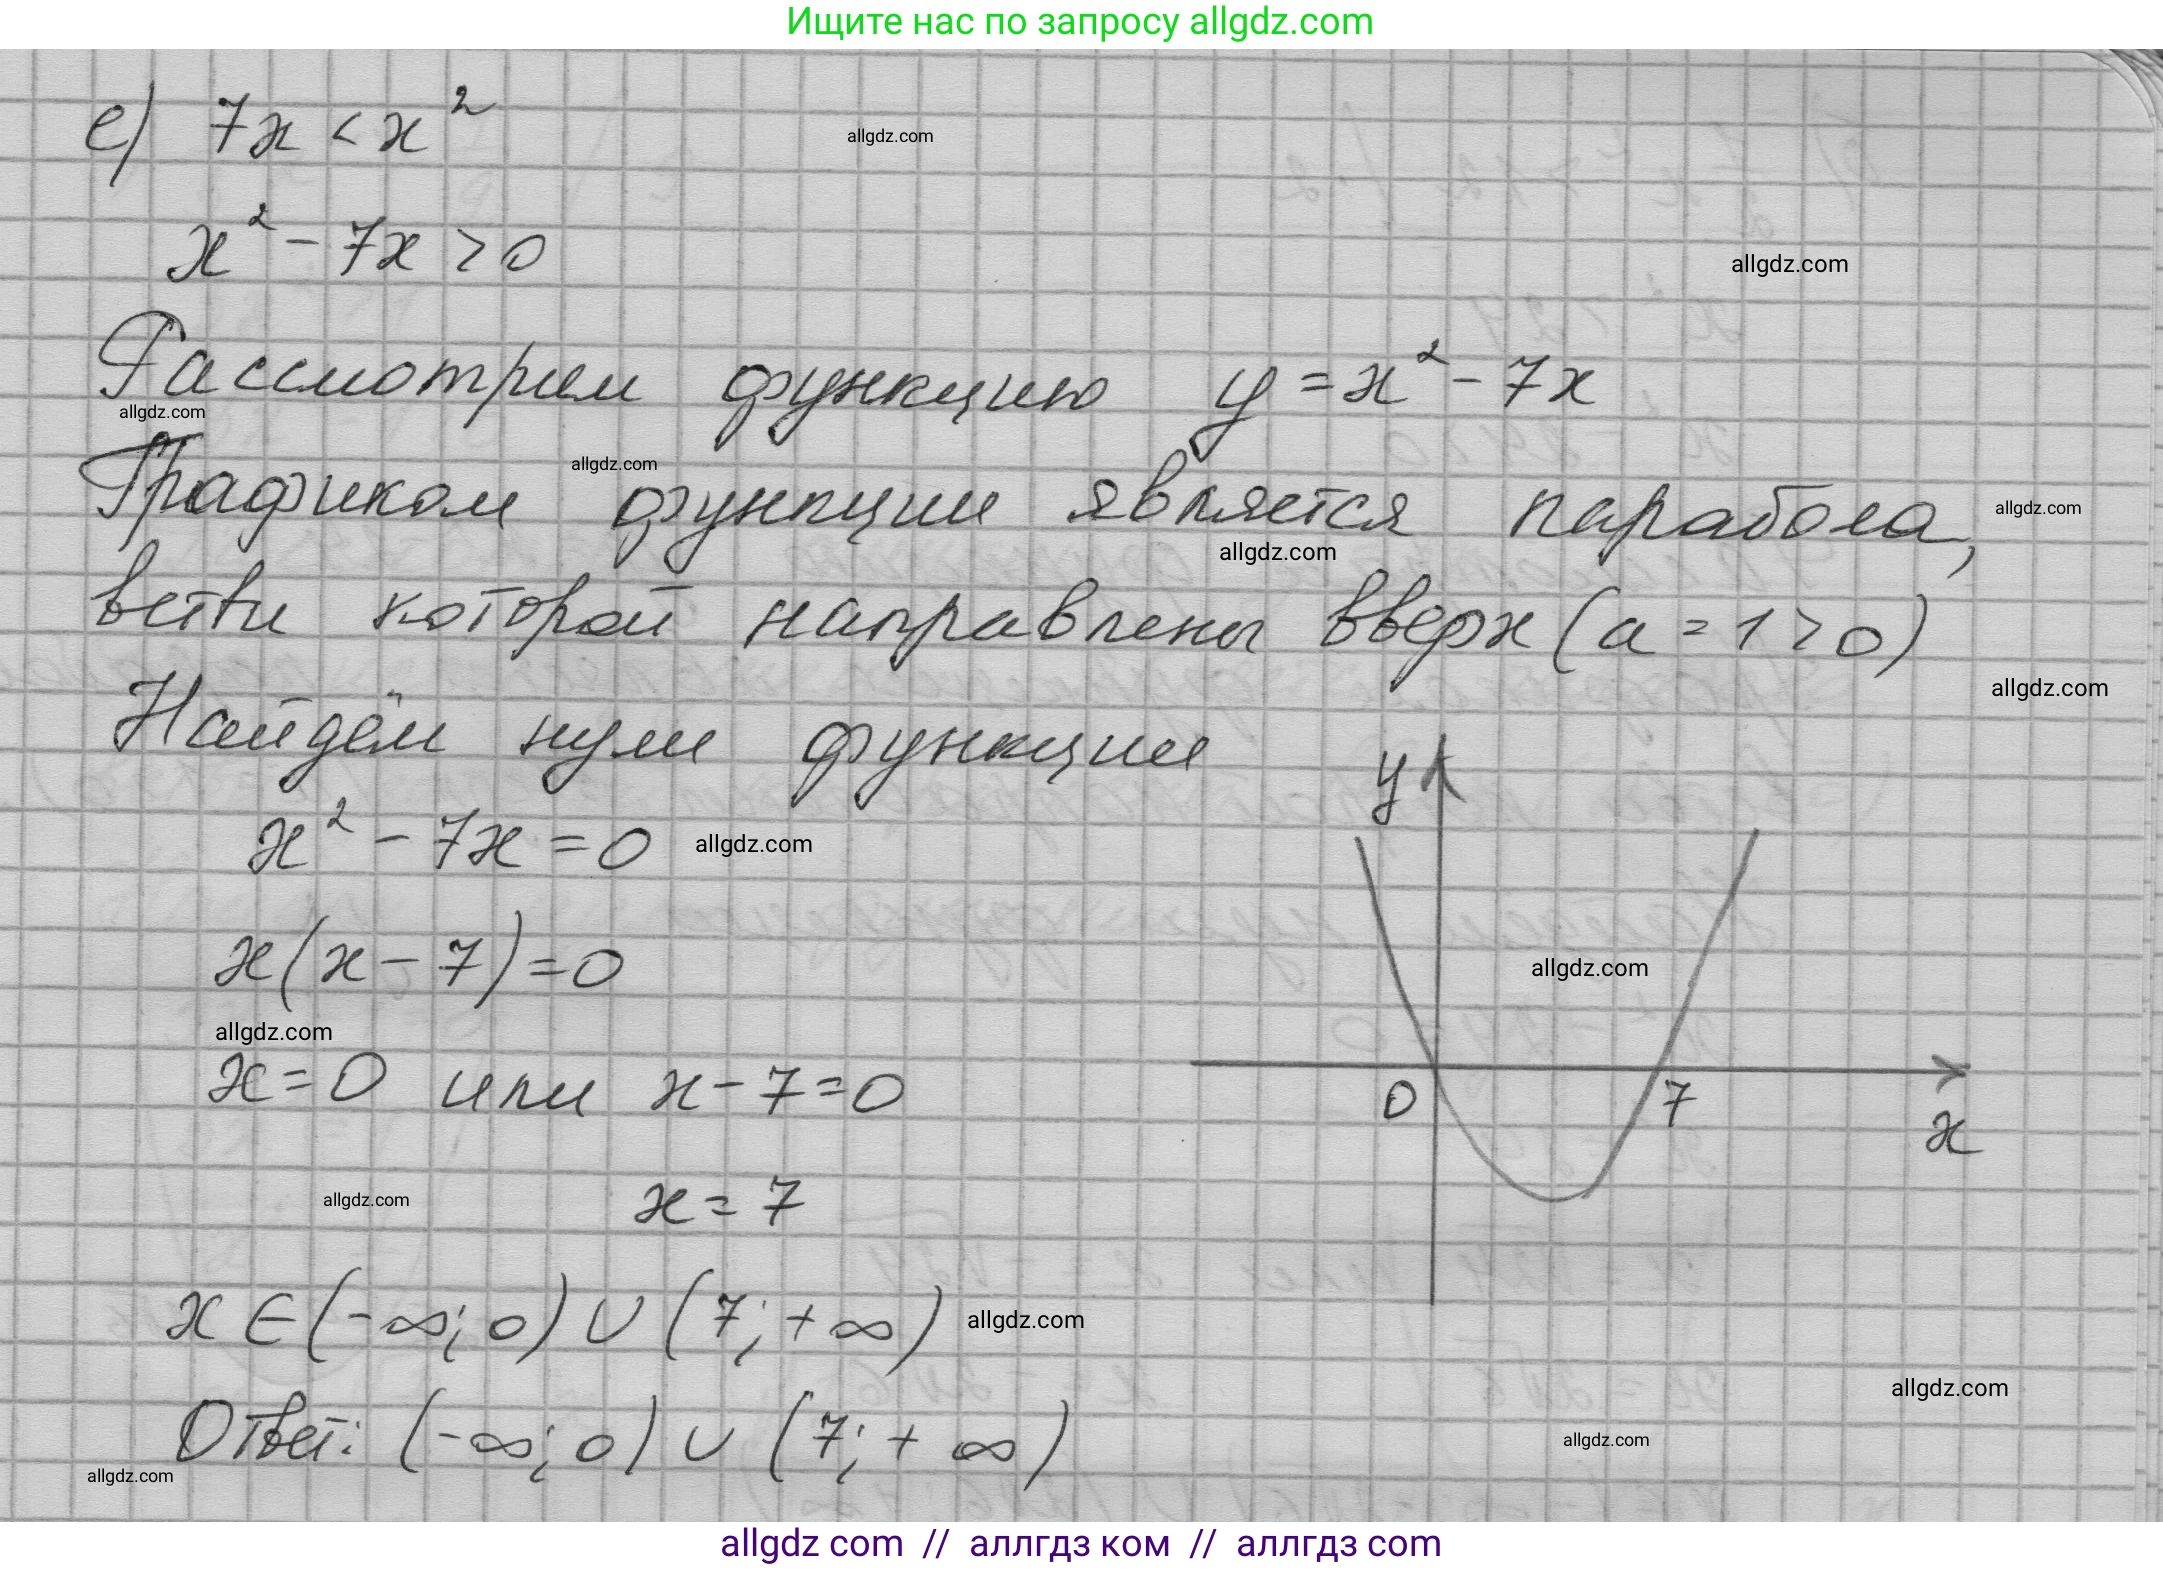 Ищите нас по запросу allgdz.com
е) 7x < x²
allgdz.com
x² - 7x > 0
allgdz.com
Рассмотрим функцию y = x² - 7x
allgdz.com
allgdz.com
Графиком функции является парабола,
allgdz.com
allgdz.com
ветви которой направлены вверх (a = 1 > 0)
allgdz.com
Найдём нули функции
y
x² - 7x = 0
allgdz.com
x(x - 7) = 0
allgdz.com
allgdz.com
x = 0 или x - 7 = 0
0 7 x
allgdz.com
x = 7
x ∈ (-∞; 0) ∪ (7; +∞)
allgdz.com
allgdz.com
Ответ: (-∞; 0) ∪ (7; +∞)
allgdz.com
allgdz.com
allgdz com // аллгдз ком // аллгдз com